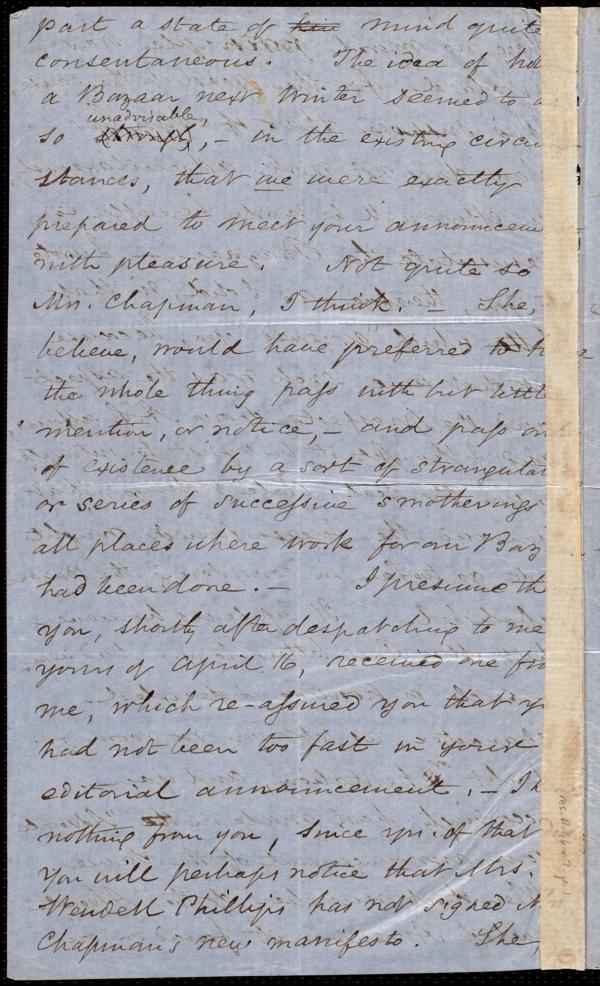 part a state of mind quite
consentaneous. The idea of ho
a Bazaar next Winter seemed to
unadvisable,
so , – in the existing circum
stances, that we were exactly
prepared to meet your announcem
with pleasure. Not quite so
Mrs. Chapman, I think. – She,
believe, would have preferred to
the whole thing pass with but little
mention, or notice, – and pass out
of existence by a sort of strangulat
or series of successive smotherings
all places where work for our Baz
had been done. – I presume th
you, shortly after despatching to me
yours of April 16, received one fro
me, which re-assured you that y
had not been too fast in your
editorial announcement. – I h
nothing from you, since yrs. of that
You will perhaps notice that Mrs.
Wendell Phillips has not signed M
Chapman's new manifesto. She,